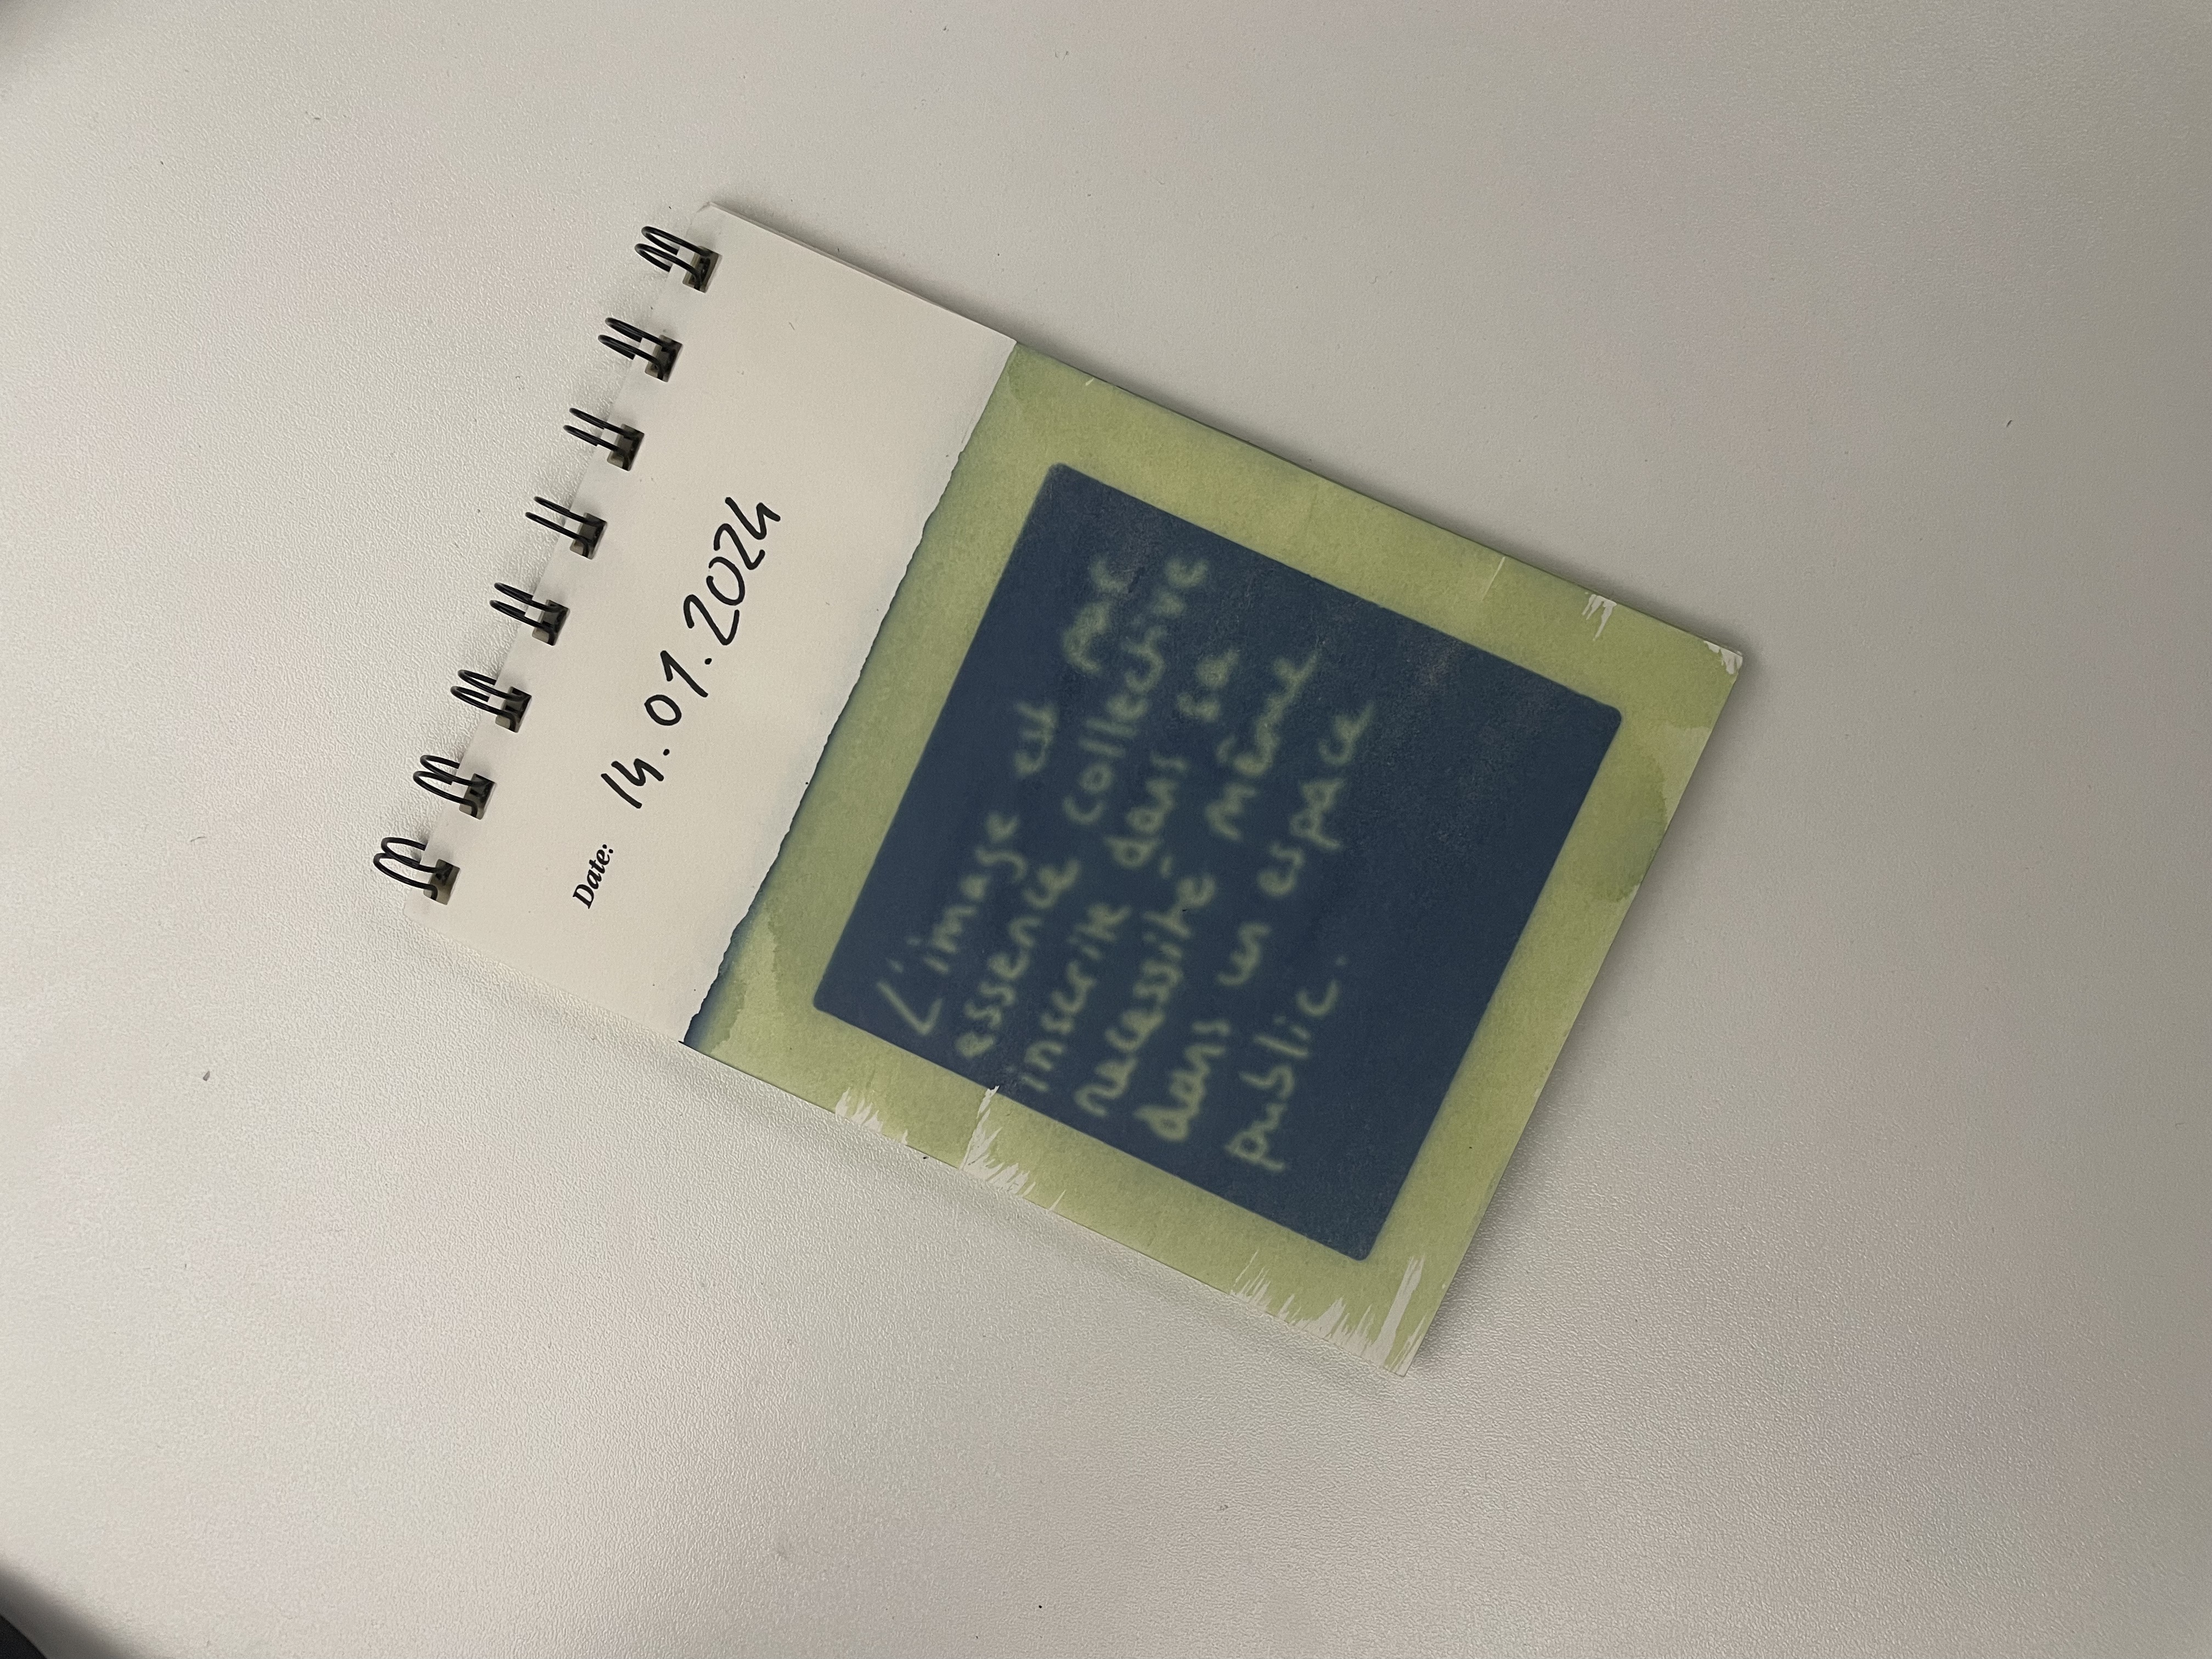 Date: 14.01.2024
L'image est par
essence collective
inscrite dans sa
necessité même
dans un espace
public.